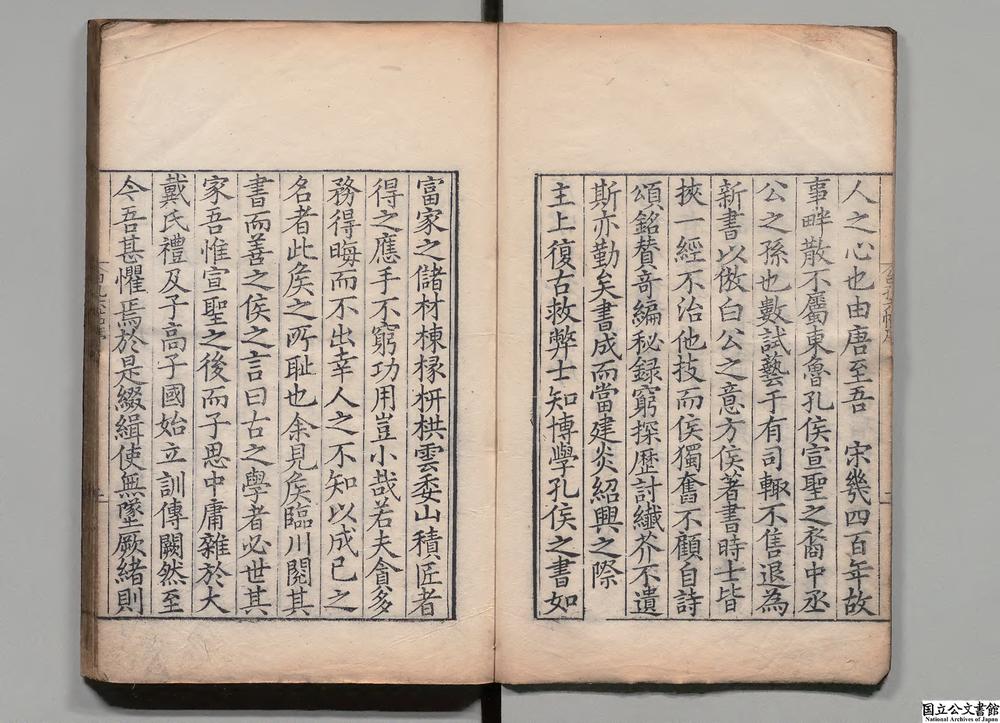 人之心也由唐至吾　宋幾四百年故
事畔散不屬東魯孔侯宣聖之裔中丞
公之孫也數試藝于有司輙不售退為
新書以倣白公之意方侯著書時士皆
挾一經不治他技而侯獨奮不顧自詩
頌銘賛竒編秘録窮探歴討纖芥不遺
斯亦勤矣書成而當建炎紹興之際
主上復古救弊士知博學孔侯之書如
富家之儲材棟椽枅栱雲委山積匠者
得之應手不窮功用豈小哉若夫貪多
務得晦而不出幸人之不知以成己之
名者此矦之所耻也余見矦臨川閱其
書而善之侯之言曰古之學者必世其
家吾惟宣聖之後而子思中庸雜於大
戴氏禮及子高子國始立訓傳闕然至
今吾甚懼焉於是綴緝使無墜厥緒則
国立公文書館
National Archives of Japan